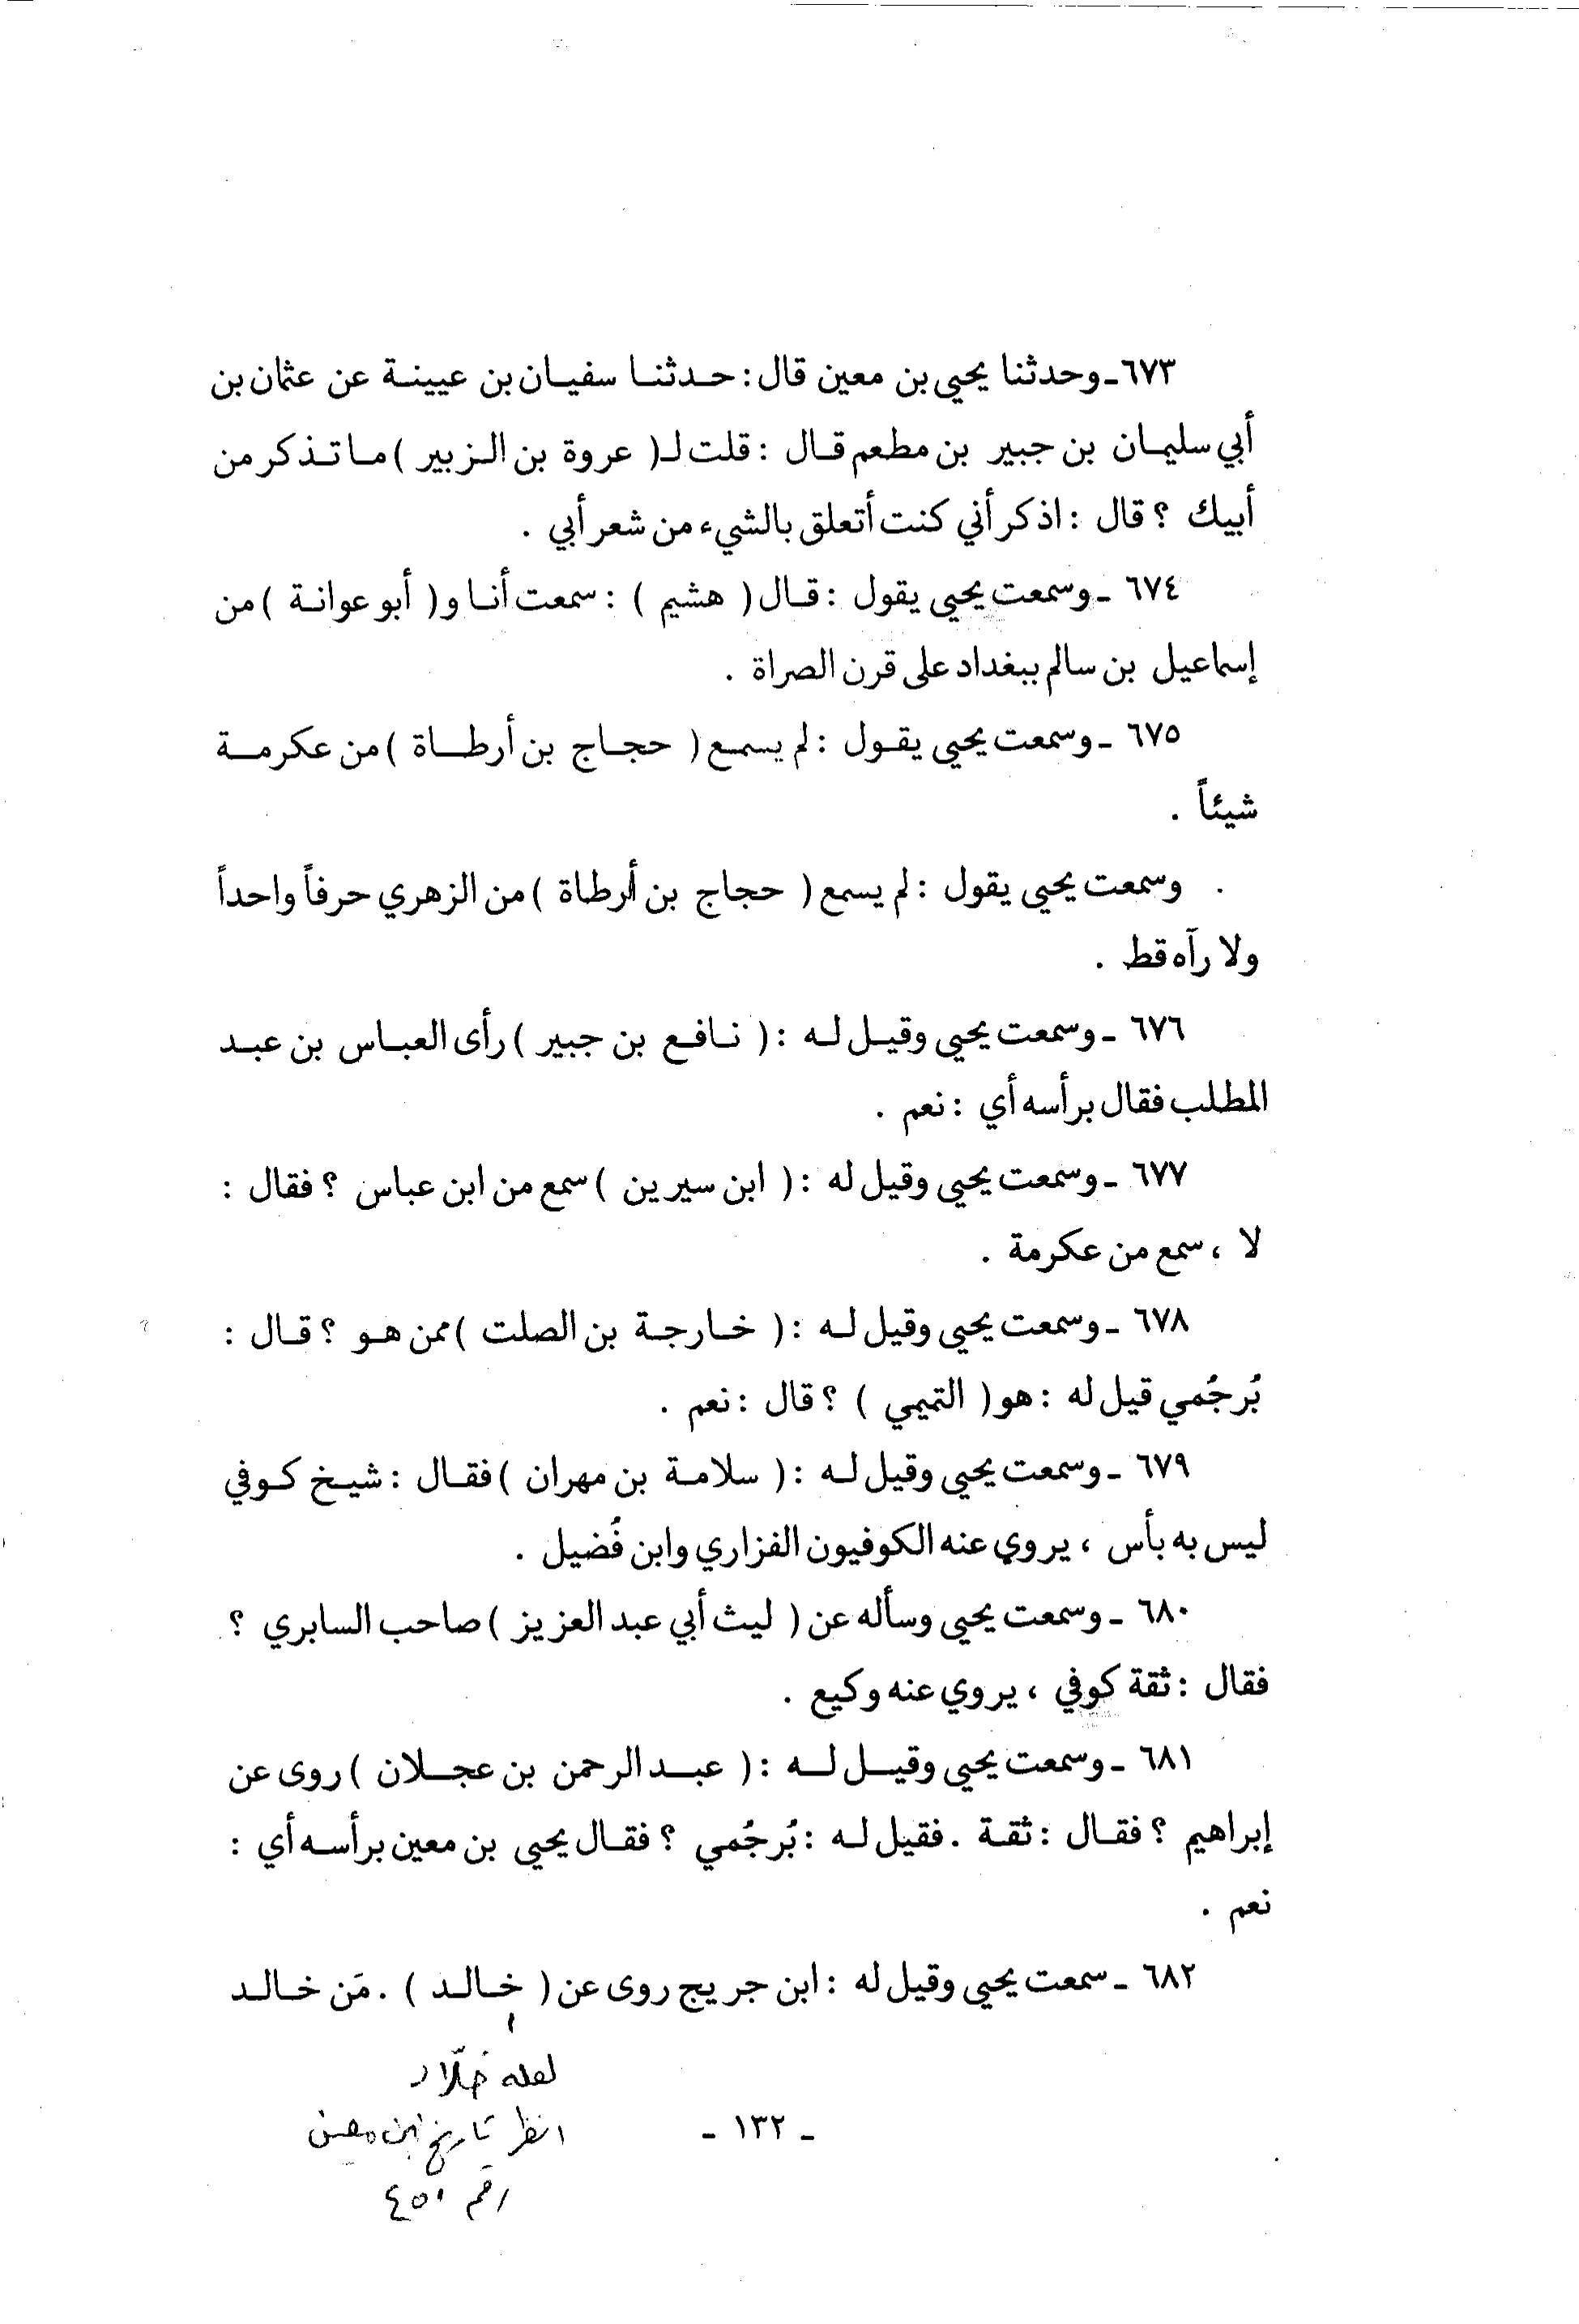 ٦٧٣ـ وحدثنا يحيى بن معين قال : حدثنا سفيان بن عيينة عن عثمان بن
أبي سليمان بن جبير بن مطعم قال : قلت لـ ( عروة بن الزبير ) ما تذكر من
أبيك ؟ قال : اذكر أني كنت أتعلق بالشيء من شعر أبي .
٦٧٤ ـ وسمعت يحيى يقول : قال ( هشيم ) : سمعت أنا و ( أبو عوانة ) من
إسماعيل بن سالم ببغداد على قرن الصراة .
٦٧٥ ـ وسمعت يحيى يقول : لم يسمع ( حجاج بن أرطاة ) من عكرمة
شيئاً .
. وسمعت يحيى يقول : لم يسمع ( حجاج بن أرطاة ) من الزهري حرفاً واحداً
ولا رآه قط .
٦٧٦ ـ وسمعت يحيى وقيل له : ( نافع بن جبير ) رأى العباس بن عبد
المطلب فقال برأسه أي : نعم .
٦٧٧ ـ وسمعت يحيى وقيل له : ( ابن سيرين ) سمع من ابن عباس ؟ فقال :
لا ، سمع من عكرمة .
٦٧٨ ـ وسمعت يحيى وقيل له : ( خارجة بن الصلت ) ممن هو ؟ قال :
بُرجُمي قيل له : هو ( التميمي ) ؟ قال : نعم .
٦٧٩ ـ وسمعت يحيى وقيل له : ( سلامة بن مهران ) فقال : شيخ كوفي
ليس به بأس ، يروي عنه الكوفيون الفزاري وابن فُضيل .
٦٨٠ ـ وسمعت يحيى وسأله عن ( ليث أبي عبد العزيز ) صاحب السابري ؟
فقال : ثقة كوفي ، يروي عنه وكيع .
٦٨١ ـ وسمعت يحيى وقيل له : ( عبد الرحمن بن عجلان ) روى عن
إبراهيم ؟ فقال : ثقة . فقيل له : بُرجُمي ؟ فقال يحيى بن معين برأسه أي :
نعم .
٦٨٢ ـ سمعت يحيى وقيل له : ابن جريج روى عن ( خالد ) . مَن خالد
لعله خلّاد
انظر تاريخ ابن معين
رقم ٤٥٠
ـ ١٣٢ ـ